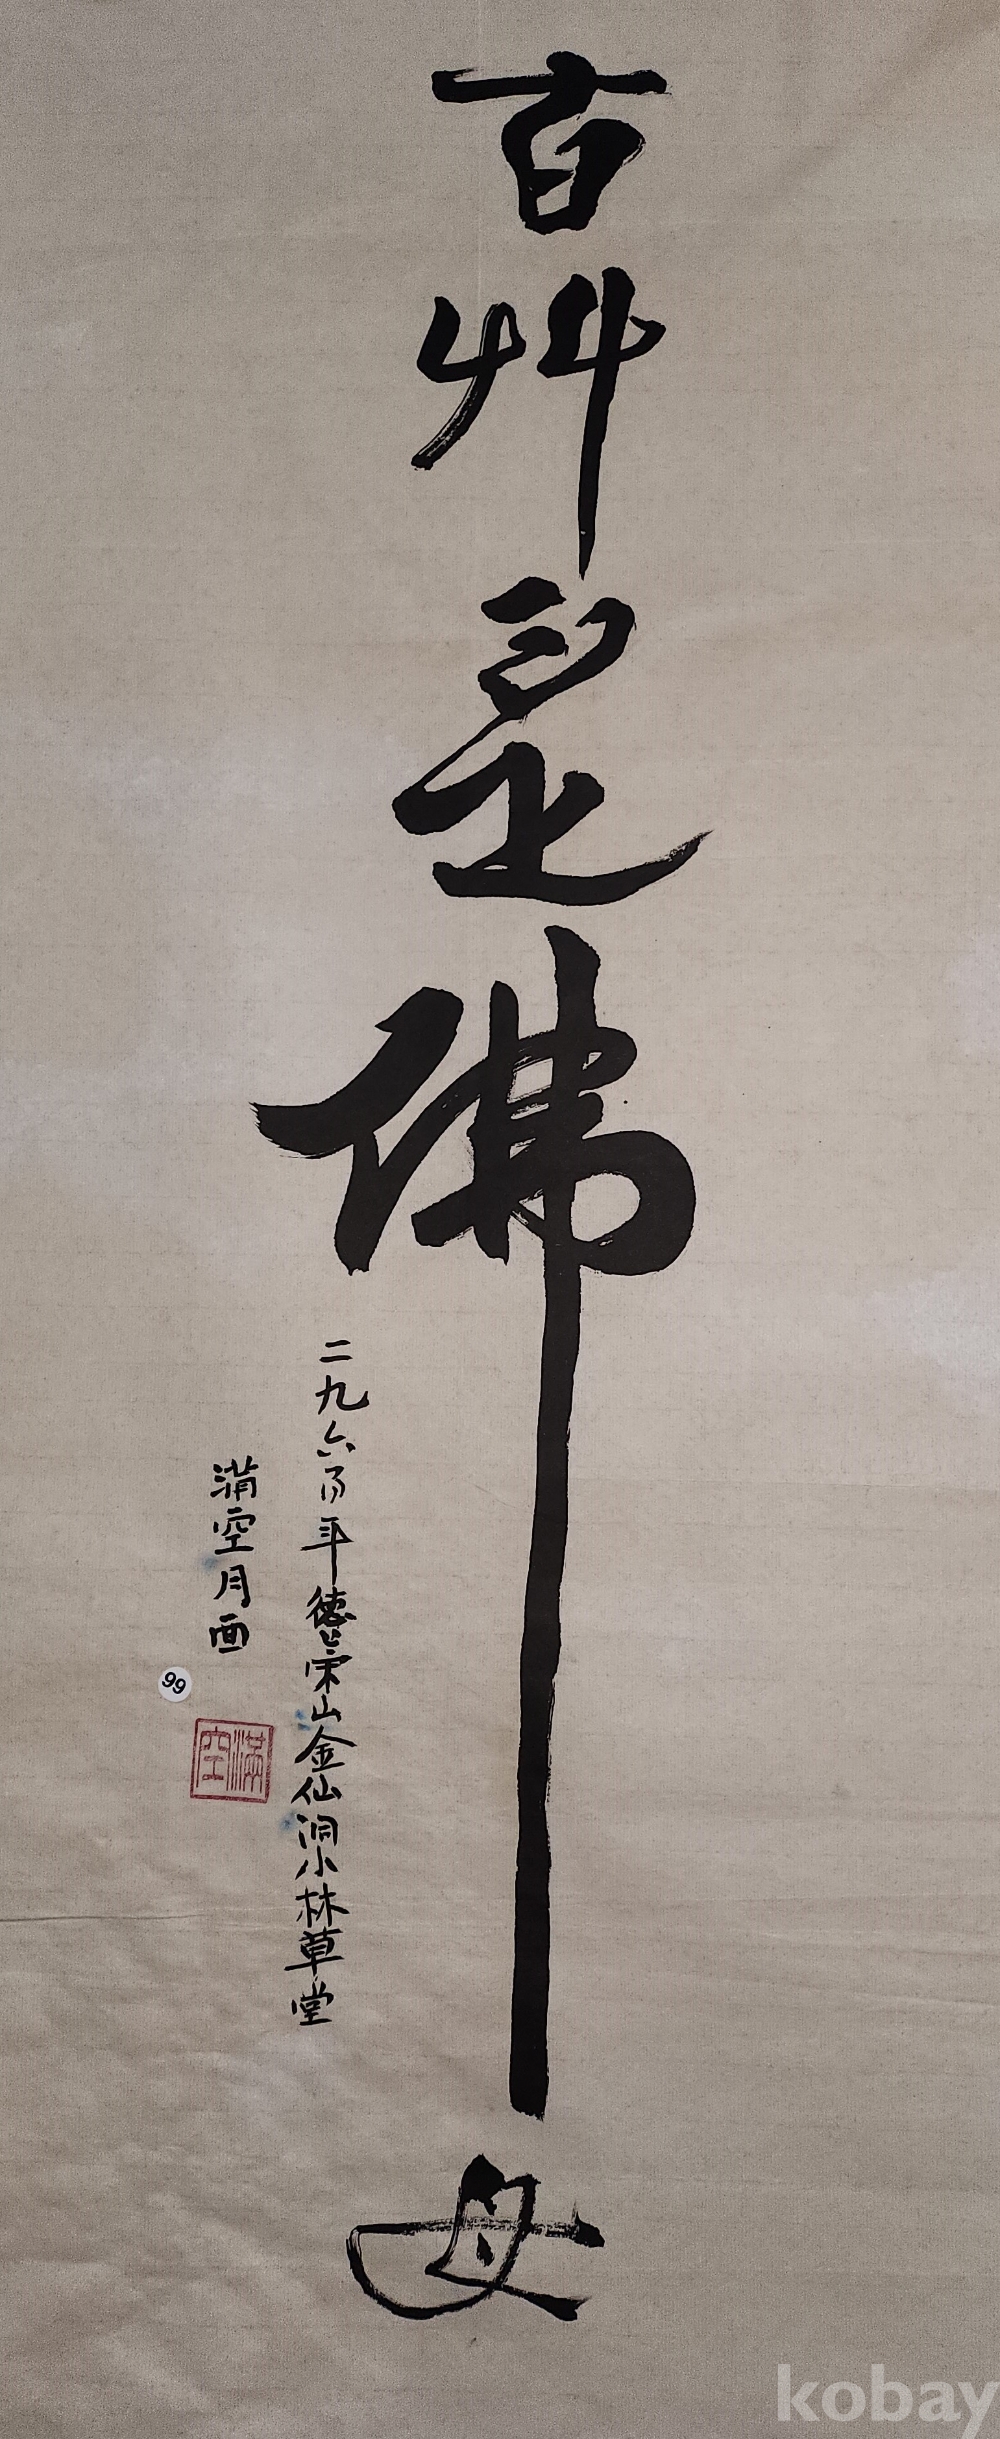 百艸是佛母
二九六年德崇山金仙洞小林草堂
滿空月面
99
滿空
kobay